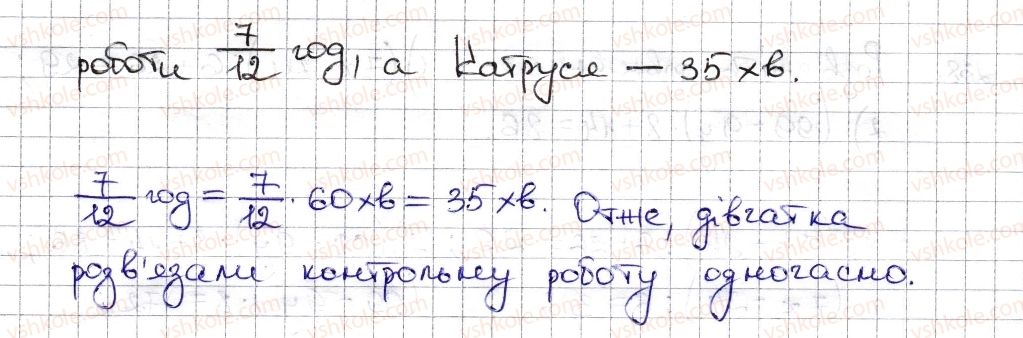 роботи 7/12 год, а Катруся – 35 хв.
7/12 год = 7/12 · 60 хв = 35 хв. Отже, дівчатка
розв'язали контрольну роботу одночасно.